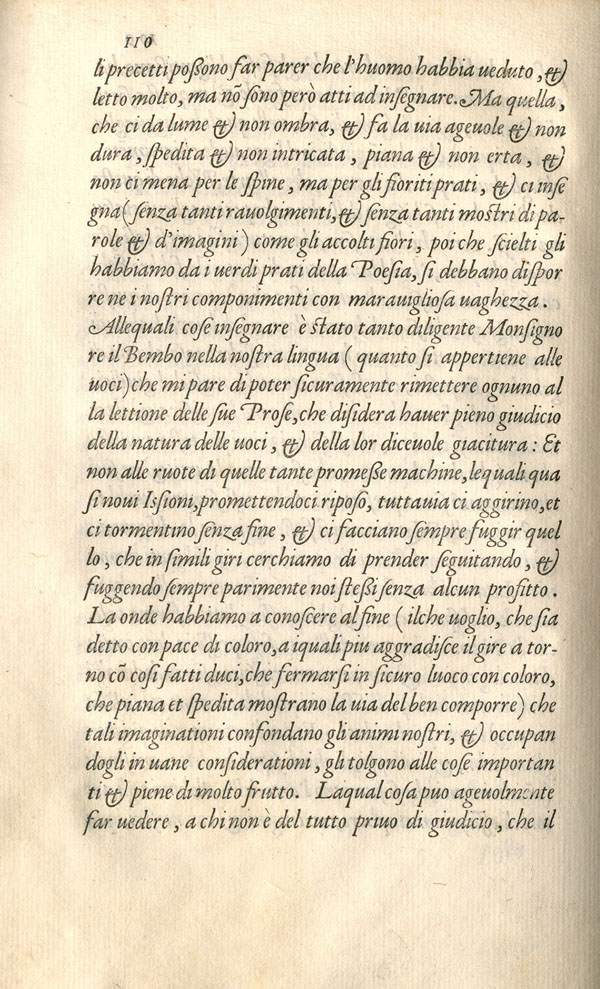 110
li precetti possono far parer che l'huomo habbia ueduto, &
letto molto, ma nõ sono però atti ad insegnare. Ma quella,
che ci da lume & non ombra, & fa la uia ageuole & non
dura, spedita & non intricata, piana & non erta, &
non ci mena per le spine, ma per gli fioriti prati, & ci inse
gna (senza tanti rauolgimenti, & senza tanti mostri di pa-
role & d'imagini) come gli accolti fiori, poi che scielti gli
habbiamo da i uerdi prati della Poesia, si debbano dispor
re ne i nostri componimenti con marauigliosa uaghezza.
Allequali cose insegnare è stato tanto diligente Monsigno
re il Bembo nella nostra lingua (quanto si appertiene alle
uoci) che mi pare di poter sicuramente rimettere ognuno al
la lettione delle sue Prose, che disidera hauer pieno giudicio
della natura delle uoci, & della lor diceuole giacitura: Et
non alle ruote di quelle tante promesse machine, lequali qua
si noui Issioni, promettendoci riposo, tuttauia ci aggirino, et
ci tormentino senza fine, & ci facciano sempre fuggir quel
lo, che in simili giri cerchiamo di prender seguitando, &
fuggendo sempre parimente noi stessi senza alcun profitto.
La onde habbiamo a conoscere al fine (ilche uoglio, che sia
detto con pace di coloro, a iquali piu aggradisce il gire a tor-
no cõ cosi fatti duci, che fermarsi in sicuro luoco con coloro,
che piana et spedita mostrano la uia del ben comporre) che
tali imaginationi confondano gli animi nostri, & occupan
dogli in uane considerationi, gli tolgono alle cose importan
ti & piene di molto frutto. Laqual cosa puo ageuolmente
far uedere, a chi non è del tutto priuo di giudicio, che il